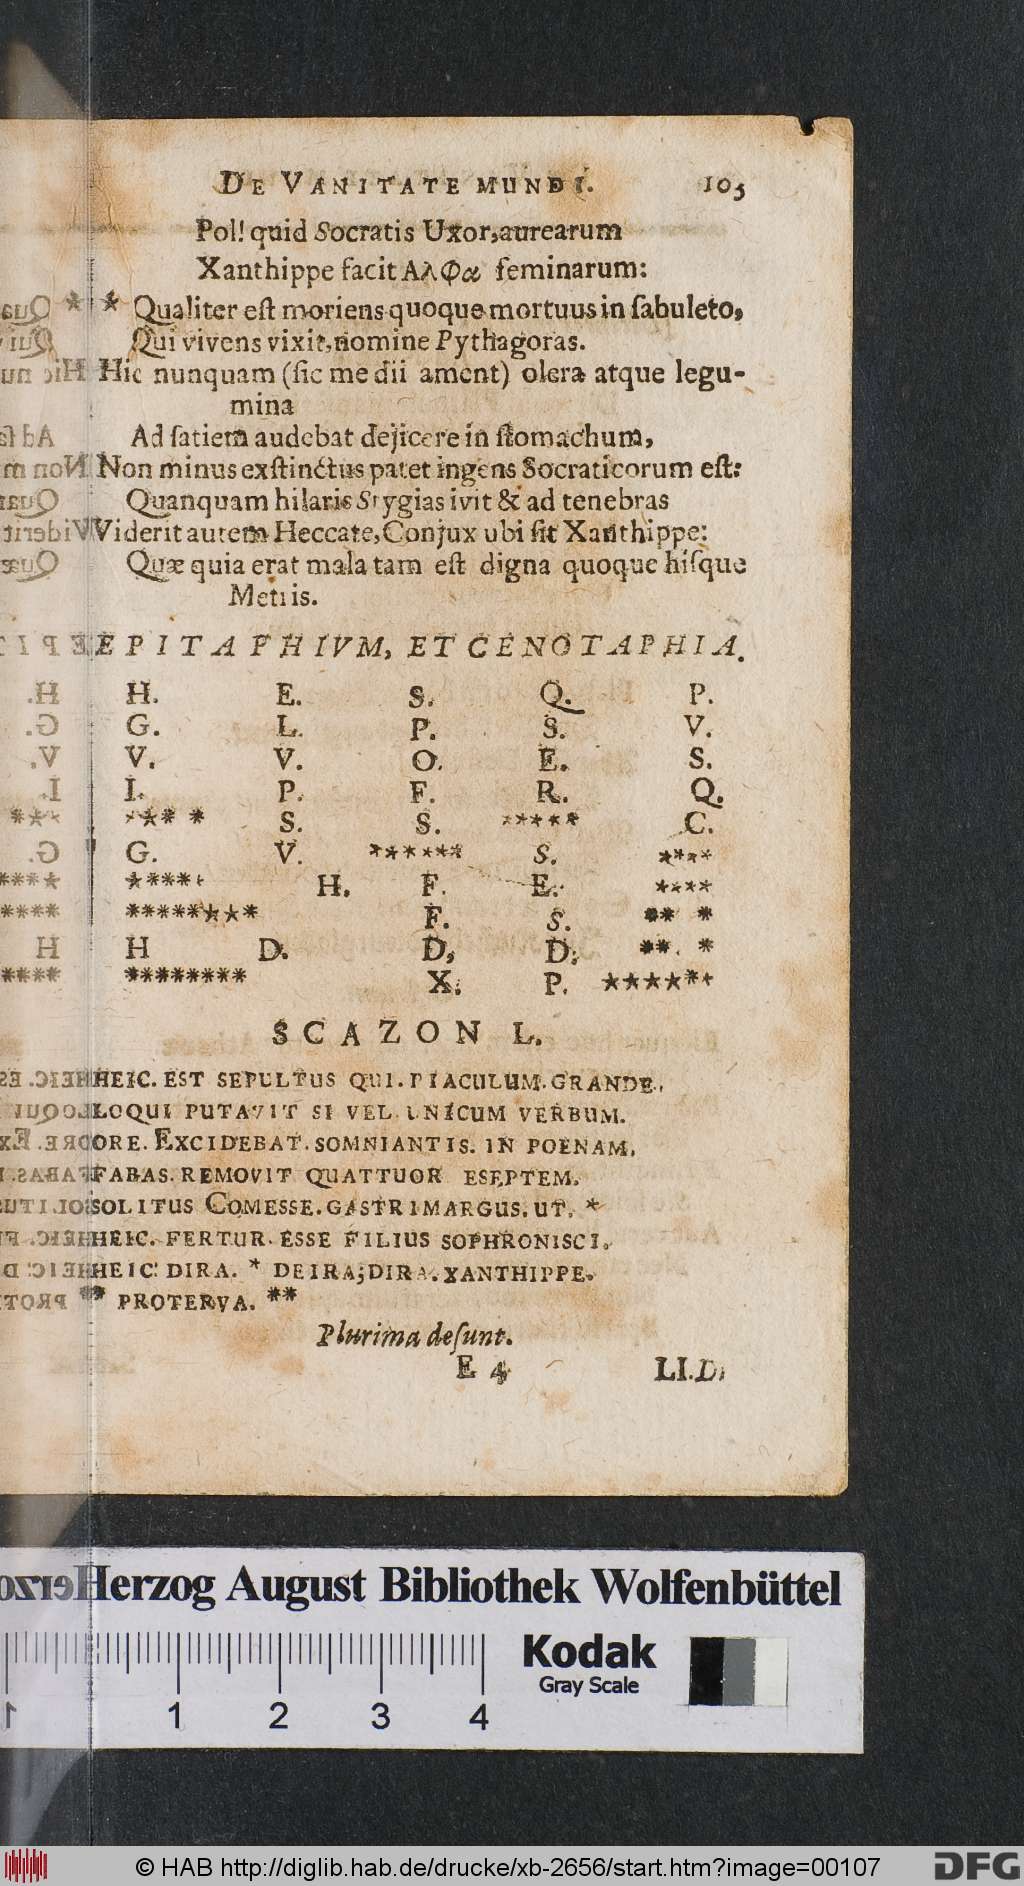 DE VANITATE MUNDI. 105
Pol! quid Socratis Uxor, aurearum
Xanthippe facit Αλφα feminarum:
* Qualiter est moriens quoque mortuus in sabuleto,
Qui vivens vixit, nomine Pythagoras.
Hic nunquam (sic me dii ament) olera atque legu-
mina
Ad satiem audebat dejicere in stomachum,
Non minus exstinctus patet ingens Socraticorum est:
Quanquam hilaris Stygias ivit & ad tenebras
Viderit autem Heccate, Conjux ubi sit Xanthippe:
Quæ quia erat mala tam est digna quoque hisque
Metris.
EPITAPHIVM, ET CENOTAPHIA.
H. E. S. Q. P.
G. L. P. S. V.
V. V. O. E. S.
I. P. F. R. Q.
**** * S. S. ***** C.
G. V. ****** S. ****
***** H. F. E. ****
********** F. S. ** *
H D. D, D. **. *
******** X. P. *******
SCAZON L.
HEIC. EST SEPULTUS QUI. PIACULUM. GRANDE.
LOQUI PUTAVIT SI VEL UNICUM VERBUM.
ORE. EXCIDEBAT. SOMNIANTIS. IN POENAM,
FABAS. REMOVIT QUATTUOR ESEPTEM.
SOLITUS COMESSE. GASTRIMARGUS. UT. *
HEIC. FERTUR. ESSE FILIUS SOPHRONISCI.
HEIC. DIRA. * DEIRA; DIRA. XANTHIPPE.
** PROTERVA. **
Plurima desunt.
E 4 LI. D.
Herzog August Bibliothek Wolfenbüttel
Kodak
Gray Scale
1 2 3 4
© HAB http://diglib.hab.de/drucke/xb-2656/start.htm?image=00107 DFG